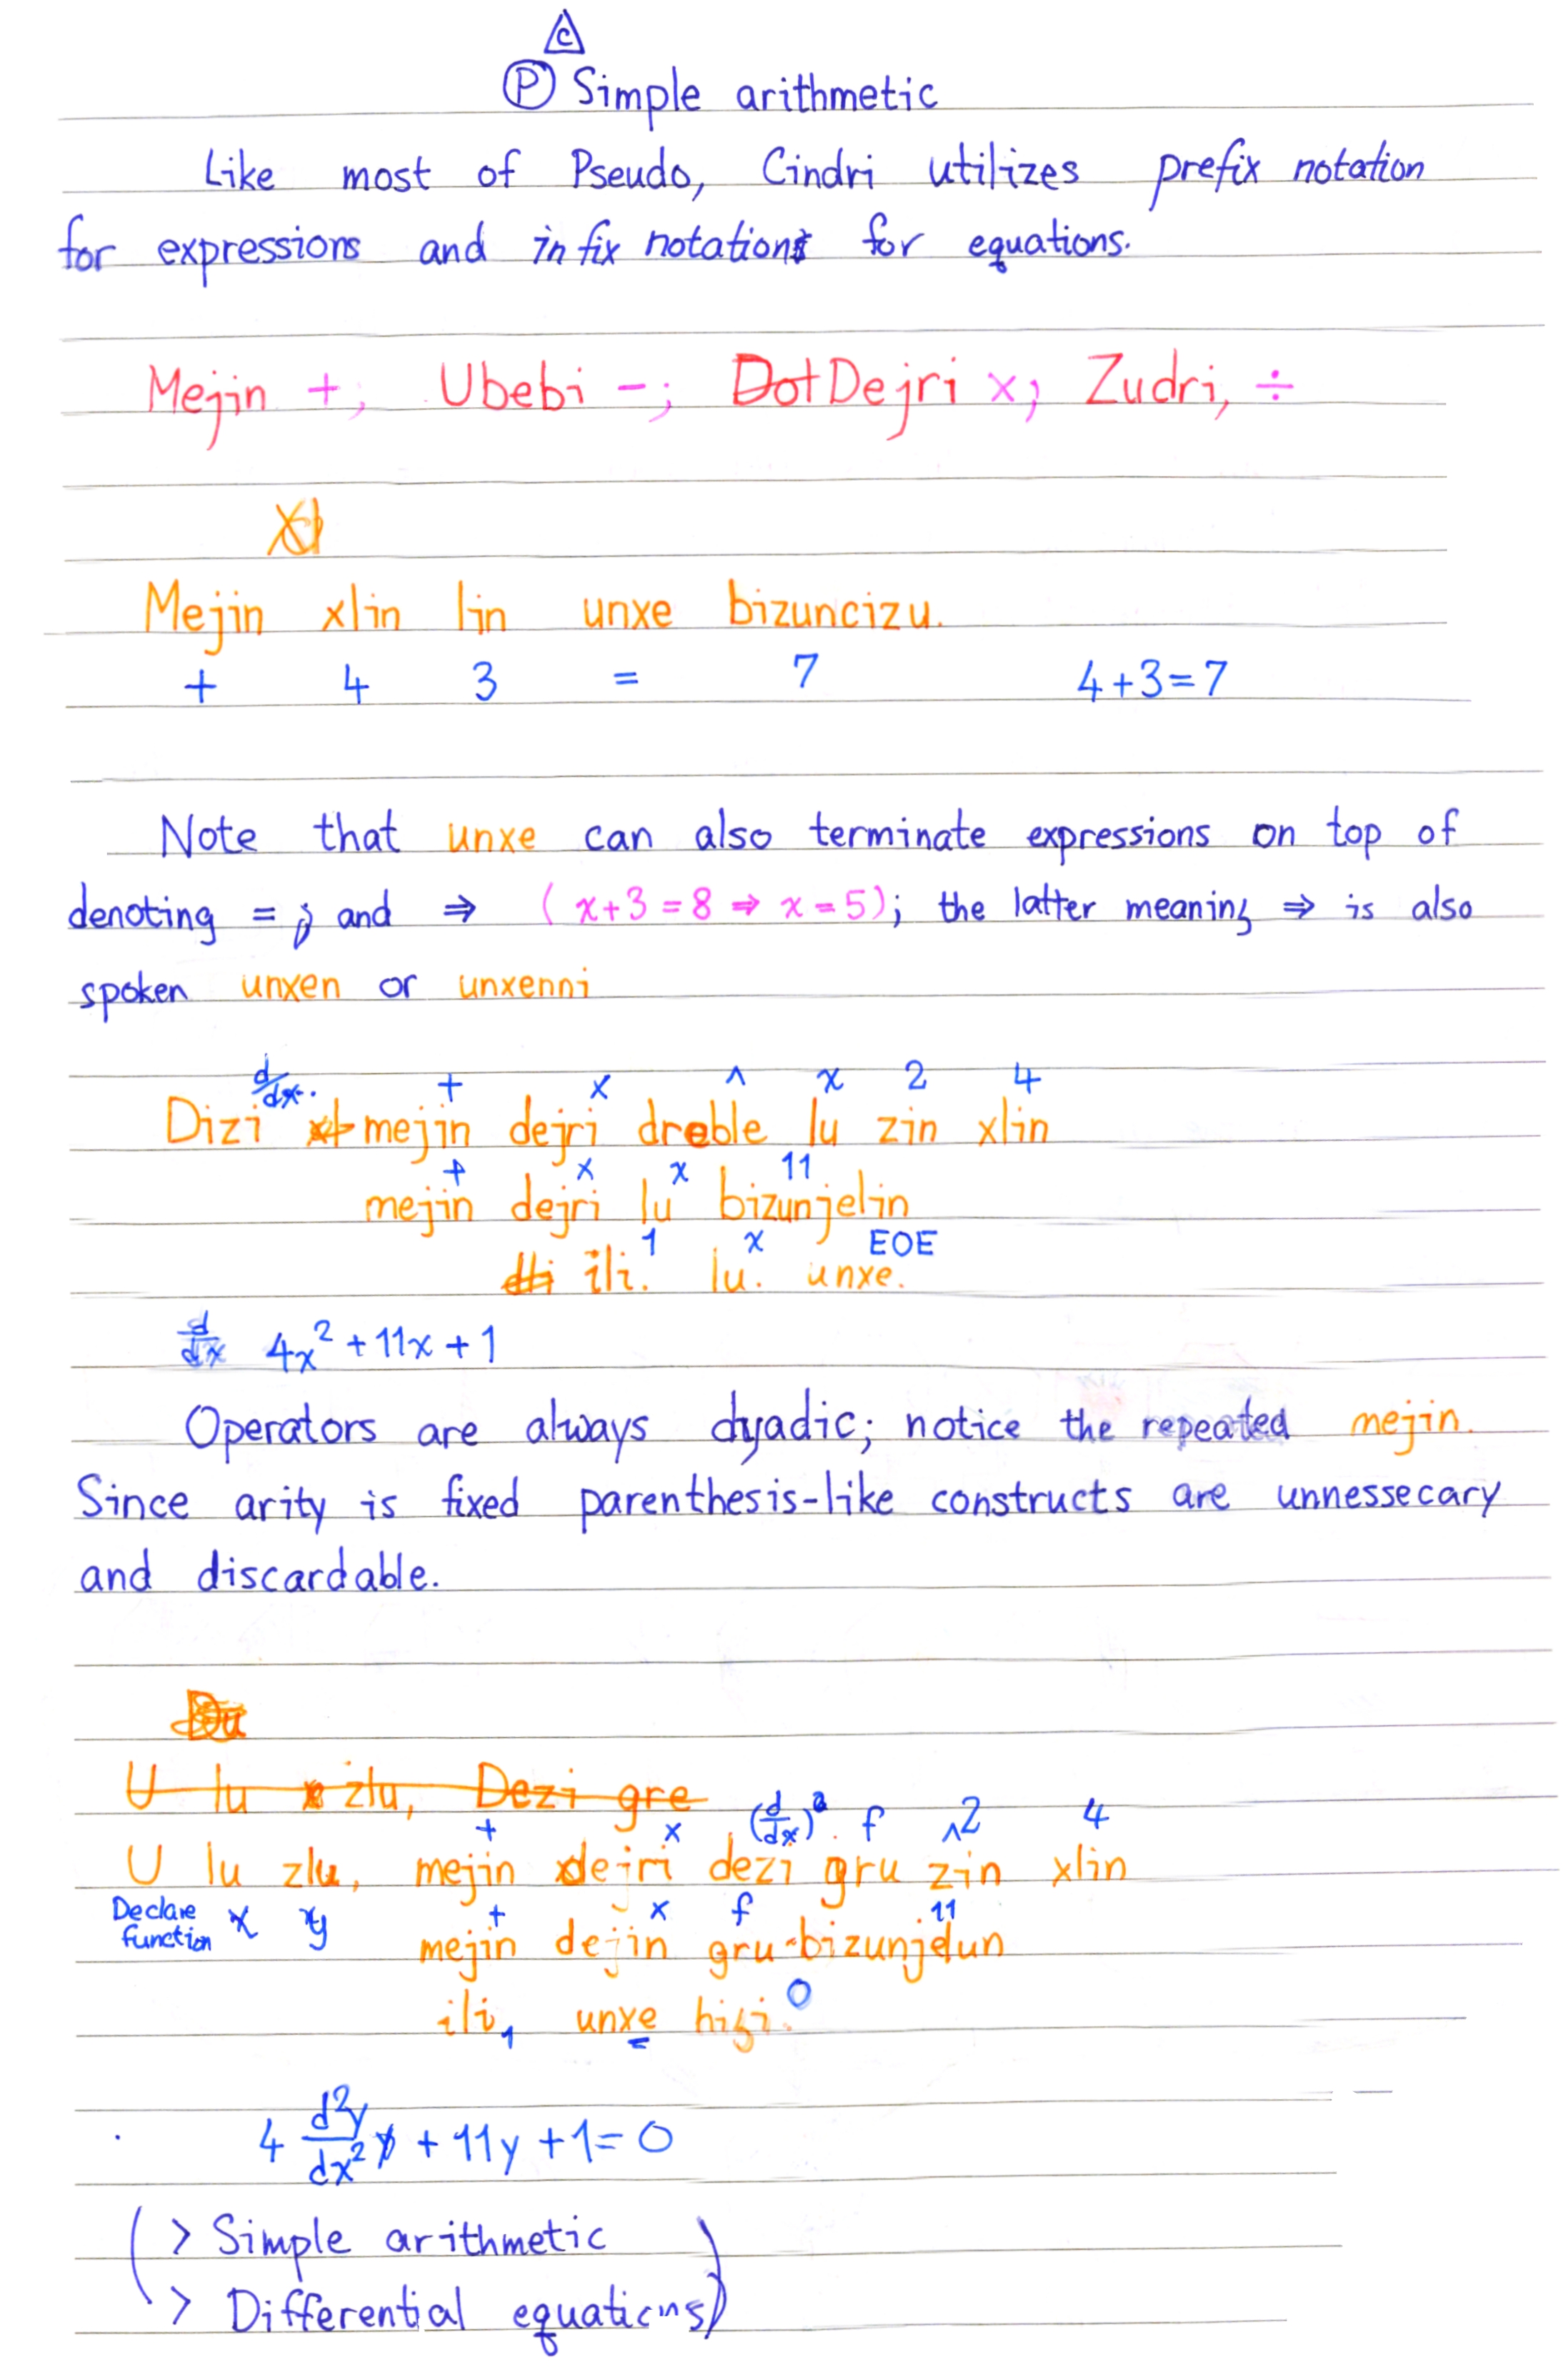 C
P Simple arithmetic
Like most of Pseudo, Cindri utilizes prefix notation
for expressions and infix notation for equations.
Mejin +, Ubebi -; Dot Dejri ×; Zudri, ÷
Mejin xlin lin unxe bizuncizu.
+ 4 3 = 7 4+3=7
Note that unxe can also terminate expressions on top of
denoting = ; and ⇒ (x+3=8 ⇒ x=5); the latter meaning ⇒ is also
spoken unxen or unxenni
d/dx. + × ^ x 2 4
Dizi mejin dejri dreble lu zin xlin
+ × x 11
mejin dejri lu bizunjelin
1 x EOE
ili. lu. unxe.
d/dx 4x² + 11x + 1
Operators are always dyadic; notice the repeated mejin.
Since arity is fixed parenthesis-like constructs are unnessecary
and discardable.
U lu zlu, Dezi gre
+ × (d/dx)². f ^2 4
U lu zlu, mejin dejri dezi gru zin xlin
Declare function x y + × f 11
mejin dejin gru-bizunjelun
ili, 1 unxe = hizi. 0
4 d²y/dx² + 11y + 1 = 0
( > Simple arithmetic
> Differential equations)